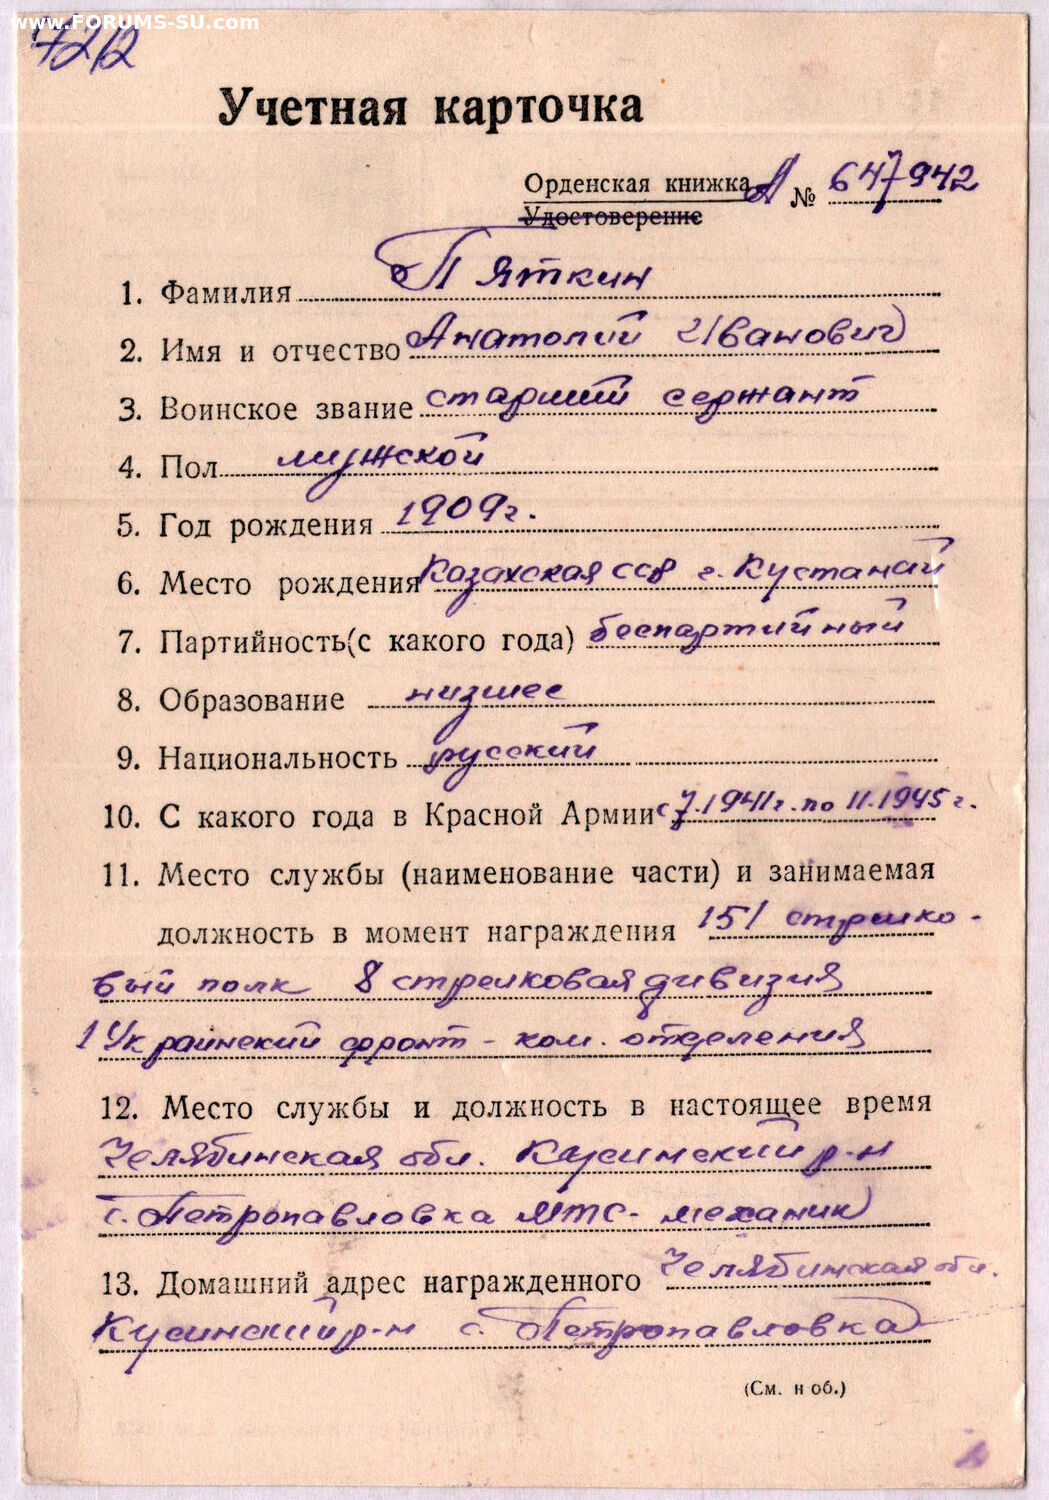 www.FORUMS-SU.com
7212
Учетная карточка
Орденская книжка А № 647942
Удостоверение
1. Фамилия Пяткин
2. Имя и отчество Анатолий Иванович
3. Воинское звание старший сержант
4. Пол мужской
5. Год рождения 1909г.
6. Место рождения Казахская ССР г. Кустанай
7. Партийность(с какого года) беспартийный
8. Образование низшее
9. Национальность русский
10. С какого года в Красной Армии с 7.1941г. по 11.1945г.
11. Место службы (наименование части) и занимаемая
должность в момент награждения 151 стрелко-
вый полк 8 стрелковая дивизия
1 Украинский фронт - ком. отделения
12. Место службы и должность в настоящее время
Челябинская обл. Кусинский р-н
с. Петропавловка МТС- механик
13. Домашний адрес награжденного Челябинская обл.
Кусинский р-н с. Петропавловка
(См. н об.)